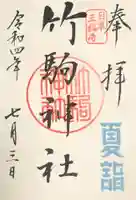 奉拝
日本
三稲荷
夏詣
竹駒神社
令和四年
七月三日